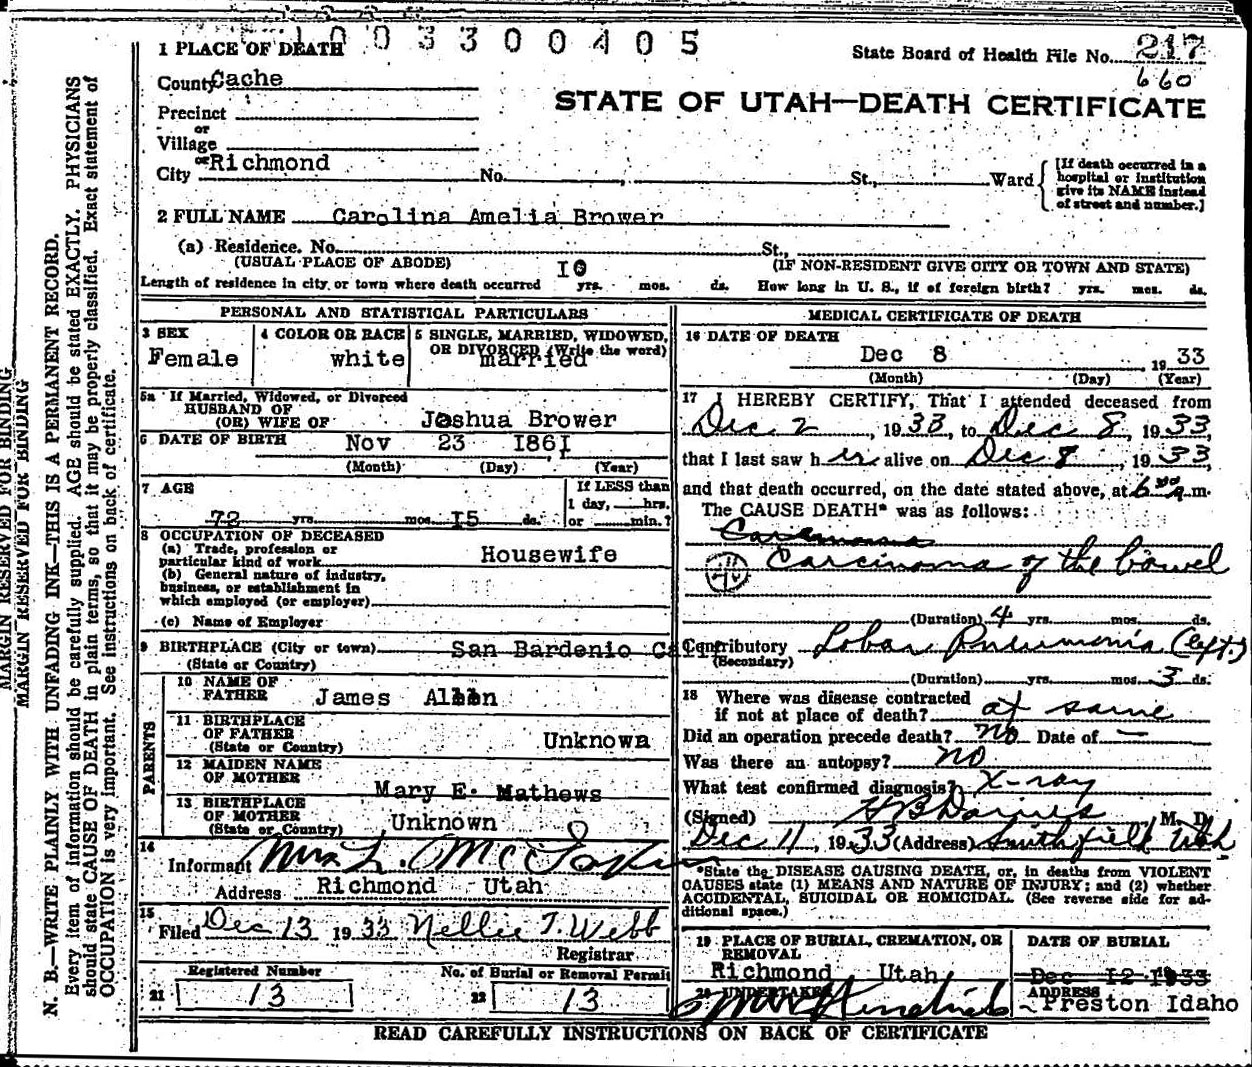 1003300405
1 PLACE OF DEATH
State Board of Health File No. 217
660
County Cache
STATE OF UTAH—DEATH CERTIFICATE
Precinct
or
Village
or
City Richmond No. , St., Ward
[If death occurred in a
hospital or institution
give its NAME instead
of street and number.]
2 FULL NAME Carolina Amelia Brower
(a) Residence. No. St.,
(USUAL PLACE OF ABODE) (IF NON-RESIDENT GIVE CITY OR TOWN AND STATE)
Length of residence in city or town where death occurred 10 yrs. mos. ds. How long in U. S., if of foreign birth? yrs. mos. ds.
PERSONAL AND STATISTICAL PARTICULARS
3 SEX 4 COLOR OR RACE 5 SINGLE, MARRIED, WIDOWED,
OR DIVORCED (Write the word)
Female white married
5a If Married, Widowed, or Divorced
HUSBAND OF
(OR) WIFE OF Joshua Brower
6 DATE OF BIRTH Nov 23 1861
(Month) (Day) (Year)
7 AGE If LESS than
1 day, hrs.
72 yrs. mos. 15 ds. or min.?
8 OCCUPATION OF DECEASED
(a) Trade, profession or
particular kind of work Housewife
(b) General nature of industry,
business, or establishment in
which employed (or employer)
(c) Name of Employer
9 BIRTHPLACE (City or town) San Bardenio Calif
(State or Country)
PARENTS
10 NAME OF
FATHER James Allen
11 BIRTHPLACE
OF FATHER
(State or Country) Unknown
12 MAIDEN NAME
OF MOTHER Mary E. Mathews
13 BIRTHPLACE
OF MOTHER
(State or Country) Unknown
14
Informant Mrs L.
Address Richmond Utah
15
Filed Dec 13 1933 Nellie T. Webb
Registrar
Registered Number No. of Burial or Removal Permit
21 13 22 13
MEDICAL CERTIFICATE OF DEATH
16 DATE OF DEATH
Dec 8 1933
(Month) (Day) (Year)
17 I HEREBY CERTIFY, That I attended deceased from
Dec 2, 1933, to Dec 8, 1933,
that I last saw her alive on Dec 8, 1933,
and that death occurred, on the date stated above, at 6 00 a m.
The CAUSE DEATH* was as follows:
46 Carcinoma of the bowel
(Duration) 4 yrs. mos. ds.
Contributory Lobar Pneumonia (left)
(Secondary)
(Duration) yrs. mos. 3 ds.
18 Where was disease contracted
if not at place of death? at same
Did an operation precede death? no Date of —
Was there an autopsy? no
What test confirmed diagnosis? X-ray
(Signed) M. D.
Dec 11, 1933 (Address) Smithfield Utah
*State the DISEASE CAUSING DEATH, or, in deaths from VIOLENT
CAUSES state (1) MEANS AND NATURE OF INJURY; and (2) whether
ACCIDENTAL, SUICIDAL OR HOMICIDAL. (See reverse side for ad-
ditional space.)
19 PLACE OF BURIAL, CREMATION, OR
REMOVAL DATE OF BURIAL
Richmond Utah Dec 12 1933
20 UNDERTAKER ADDRESS
Preston Idaho
READ CAREFULLY INSTRUCTIONS ON BACK OF CERTIFICATE
MARGIN RESERVED FOR BINDING
MARGIN RESERVED FOR BINDING
N. B.—WRITE PLAINLY WITH UNFADING INK—THIS IS A PERMANENT RECORD.
Every item of information should be carefully supplied. AGE should be stated EXACTLY. PHYSICIANS
should state CAUSE OF DEATH in plain terms, so that it may be properly classified. Exact statement of
OCCUPATION is very important. See instructions on back of certificate.